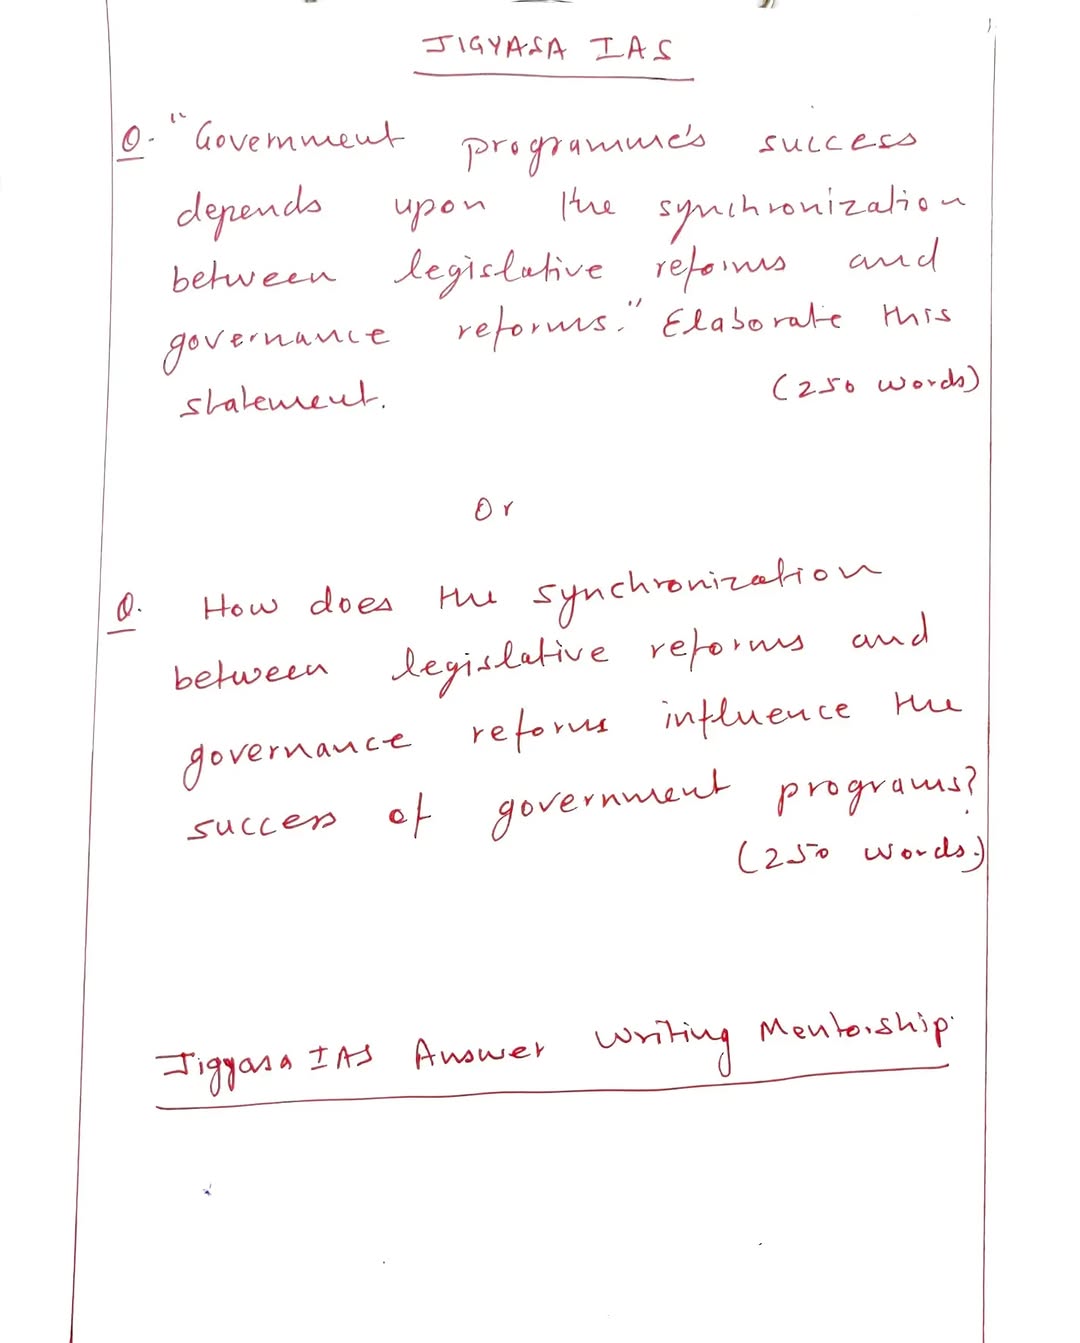 JIGYASA IAS
Q. "Government programme's success
depends upon the synchronization
between legislative reforms and
governance reforms." Elaborate this
statement. (250 words)
Or
Q. How does the synchronization
between legislative reforms and
governance reforms influence the
success of government programs?
(250 words.)
Jigyasa IAS Answer Writing Mentorship.